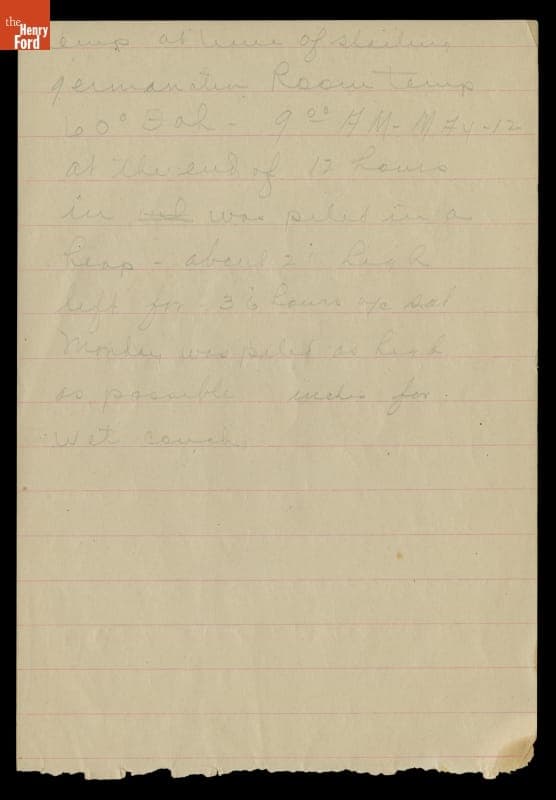 the
Henry
Ford
temp at time of starting
germanation Room Temp
60° Fah - 9⁰⁰ AM - May - 12
at the end of 12 hours
in was piled in a
heap - about 2" high
left for 36 hours
Monday was piled as high
as possible inches for
wet couch.